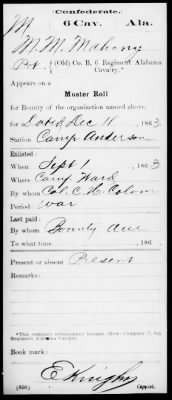 Confederate.
M 6 Cav. Ala.
M. M. Mahony
Pvt, (Old) Co. B, 6 Regiment Alabama
Cavalry.*
Appears on a
Muster Roll
for Bounty of the organization named above,
for dated Dec 18, 1863.
Station Camp Anderson
Enlisted:
When Sept 1, 1863
Where Camp Ward
By whom Col. C. H. Colvin
Period war
Last paid:
By whom Bounty due
To what time , 186
Present or absent Present
Remarks:
*This company subsequently became (New) Company C, 6th
Regiment Alabama Cavalry.
Book mark:
E Knight
(650) Copyist.